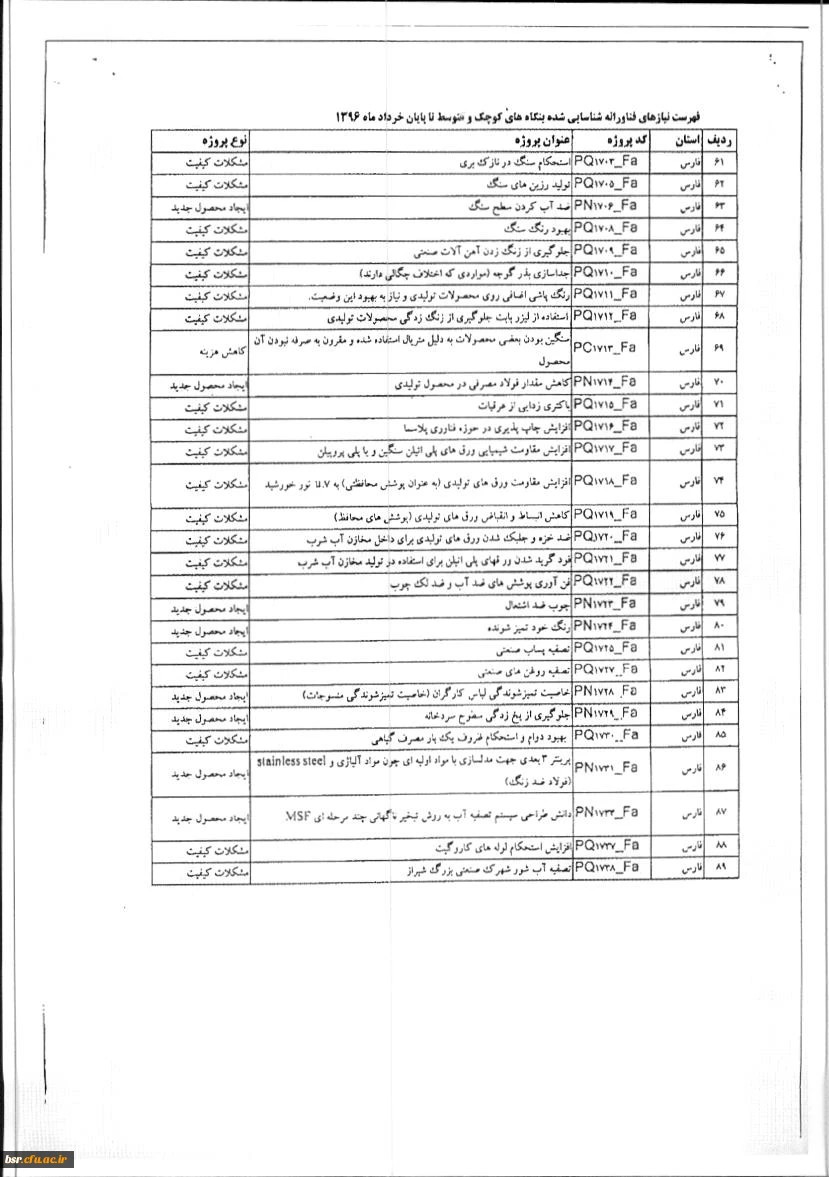 فهرست نیازهای فناورانه شناسایی شده بنگاه های کوچک و متوسط تا پایان خرداد ماه ۱۳۹۶
ردیف استان کد پروژه عنوان پروژه نوع پروژه
۶۱ فارس PQ۱۷۰۳_Fa استحکام سنگ در نازک بری مشکلات کیفیت
۶۲ فارس PQ۱۷۰۵_Fa تولید رزین های سنگ مشکلات کیفیت
۶۳ فارس PN۱۷۰۶_Fa ضد آب کردن سطح سنگ ایجاد محصول جدید
۶۴ فارس PQ۱۷۰۸_Fa بهبود رنگ سنگ مشکلات کیفیت
۶۵ فارس PQ۱۷۰۹_Fa جلوگیری از زنگ زدن آهن آلات صنعتی مشکلات کیفیت
۶۶ فارس PQ۱۷۱۰_Fa جداسازی بذر گوجه (مواردی که اختلاف چگالی دارند) مشکلات کیفیت
۶۷ فارس PQ۱۷۱۱_Fa رنگ پاشی اضافی روی محصولات تولیدی و نیاز به بهبود این وضعیت. مشکلات کیفیت
۶۸ فارس PQ۱۷۱۲_Fa استفاده از لیزر بابت جلوگیری از زنگ زدگی محصولات تولیدی مشکلات کیفیت
۶۹ فارس PC۱۷۱۳_Fa سنگین بودن بعضی محصولات به دلیل متریال استفاده شده و مقرون به صرفه نبودن آن کاهش هزینه
محصول
۷۰ فارس PN۱۷۱۴_Fa کاهش مقدار فولاد مصرفی در محصول تولیدی ایجاد محصول جدید
۷۱ فارس PQ۱۷۱۵_Fa باکتری زدایی از عرقیات مشکلات کیفیت
۷۲ فارس PQ۱۷۱۶_Fa افزایش چاپ پذیری در حوزه فناوری پلاسما مشکلات کیفیت
۷۳ فارس PQ۱۷۱۷_Fa افزایش مقاومت شیمیایی ورق های پلی اتیلن سنگین و یا پلی پروپیلن مشکلات کیفیت
۷۴ فارس PQ۱۷۱۸_Fa افزایش مقاومت ورق های تولیدی (به عنوان پوشش محافظتی) به u.v نور خورشید مشکلات کیفیت
۷۵ فارس PQ۱۷۱۹_Fa کاهش انبساط و انقباض ورق های تولیدی (پوشش های محافظ) مشکلات کیفیت
۷۶ فارس PQ۱۷۲۰_Fa ضد خزه و جلبک شدن ورق های تولیدی برای داخل مخازن آب شرب مشکلات کیفیت
۷۷ فارس PQ۱۷۲۱_Fa فرد گرید شدن ور قهای پلی اتیلن برای استفاده در تولید مخازن آب شرب مشکلات کیفیت
۷۸ فارس PQ۱۷۲۲_Fa فن آوری پوشش های ضد آب و ضد لک چوب مشکلات کیفیت
۷۹ فارس PN۱۷۲۳_Fa چوب ضد اشتعال ایجاد محصول جدید
۸۰ فارس PN۱۷۲۴_Fa رنگ خود تمیز شونده ایجاد محصول جدید
۸۱ فارس PQ۱۷۲۵_Fa تصفیه پساب صنعتی مشکلات کیفیت
۸۲ فارس PQ۱۷۲۷_Fa تصفیه روغن های صنعتی مشکلات کیفیت
۸۳ فارس PN۱۷۲۸_Fa خاصیت تمیزشوندگی لباس کارگران (خاصیت تمیزشوندگی منسوجات) ایجاد محصول جدید
۸۴ فارس PN۱۷۲۹_Fa جلوگیری از یخ زدگی سطوح سردخانه ایجاد محصول جدید
۸۵ فارس PQ۱۷۳۰_Fa بهبود دوام و استحکام ظروف یک بار مصرف گیاهی مشکلات کیفیت
۸۶ فارس PN۱۷۳۱_Fa پرینتر ۳ بعدی جهت مدلسازی با مواد اولیه ای چون مواد آلیاژی و stainless steel ایجاد محصول جدید
(فولاد ضد زنگ)
۸۷ فارس PN۱۷۳۴_Fa دانش طراحی سیستم تصفیه آب به روش تبخیر ناگهانی چند مرحله ای MSF ایجاد محصول جدید
۸۸ فارس PQ۱۷۳۷_Fa افزایش استحکام لوله های کاروگیت مشکلات کیفیت
۸۹ فارس PQ۱۷۳۸_Fa تصفیه آب شور شهرک صنعتی بزرگ شیراز مشکلات کیفیت
bsr.cfu.ac.ir